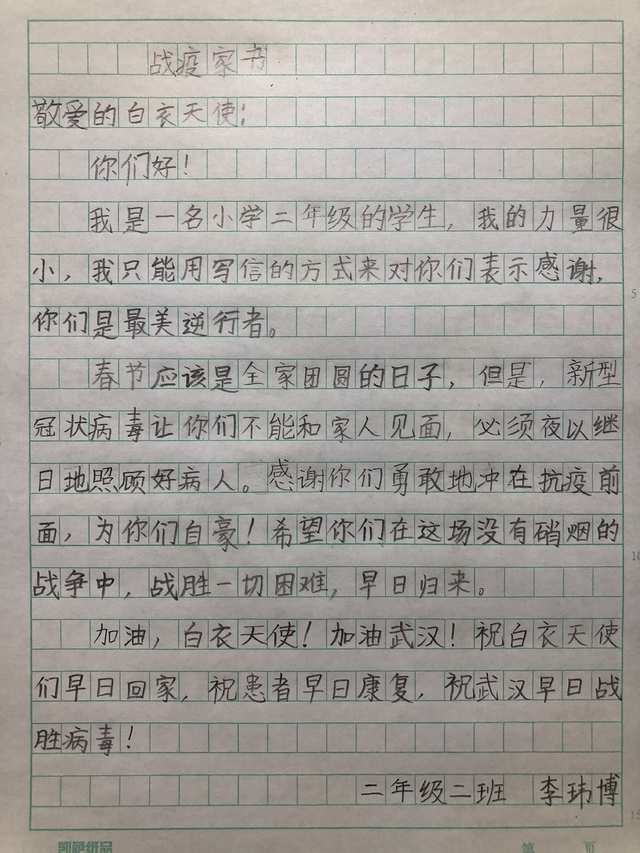 战疫家书
敬爱的白衣天使:
你们好!
我是一名小学二年级的学生,我的力量很
小,我只能用写信的方式来对你们表示感谢,
你们是最美逆行者。
春节应该是全家团圆的日子,但是,新型
冠状病毒让你们不能和家人见面,必须夜以继
日地照顾好病人。感谢你们勇敢地冲在抗疫前
面,为你们自豪!希望你们在这场没有硝烟的
战争中,战胜一切困难,早日归来。
加油,白衣天使!加油武汉!祝白衣天使
们早日回家,祝患者早日康复,祝武汉早日战
胜病毒!
二年级二班 李玮博
5
10
15
第 页